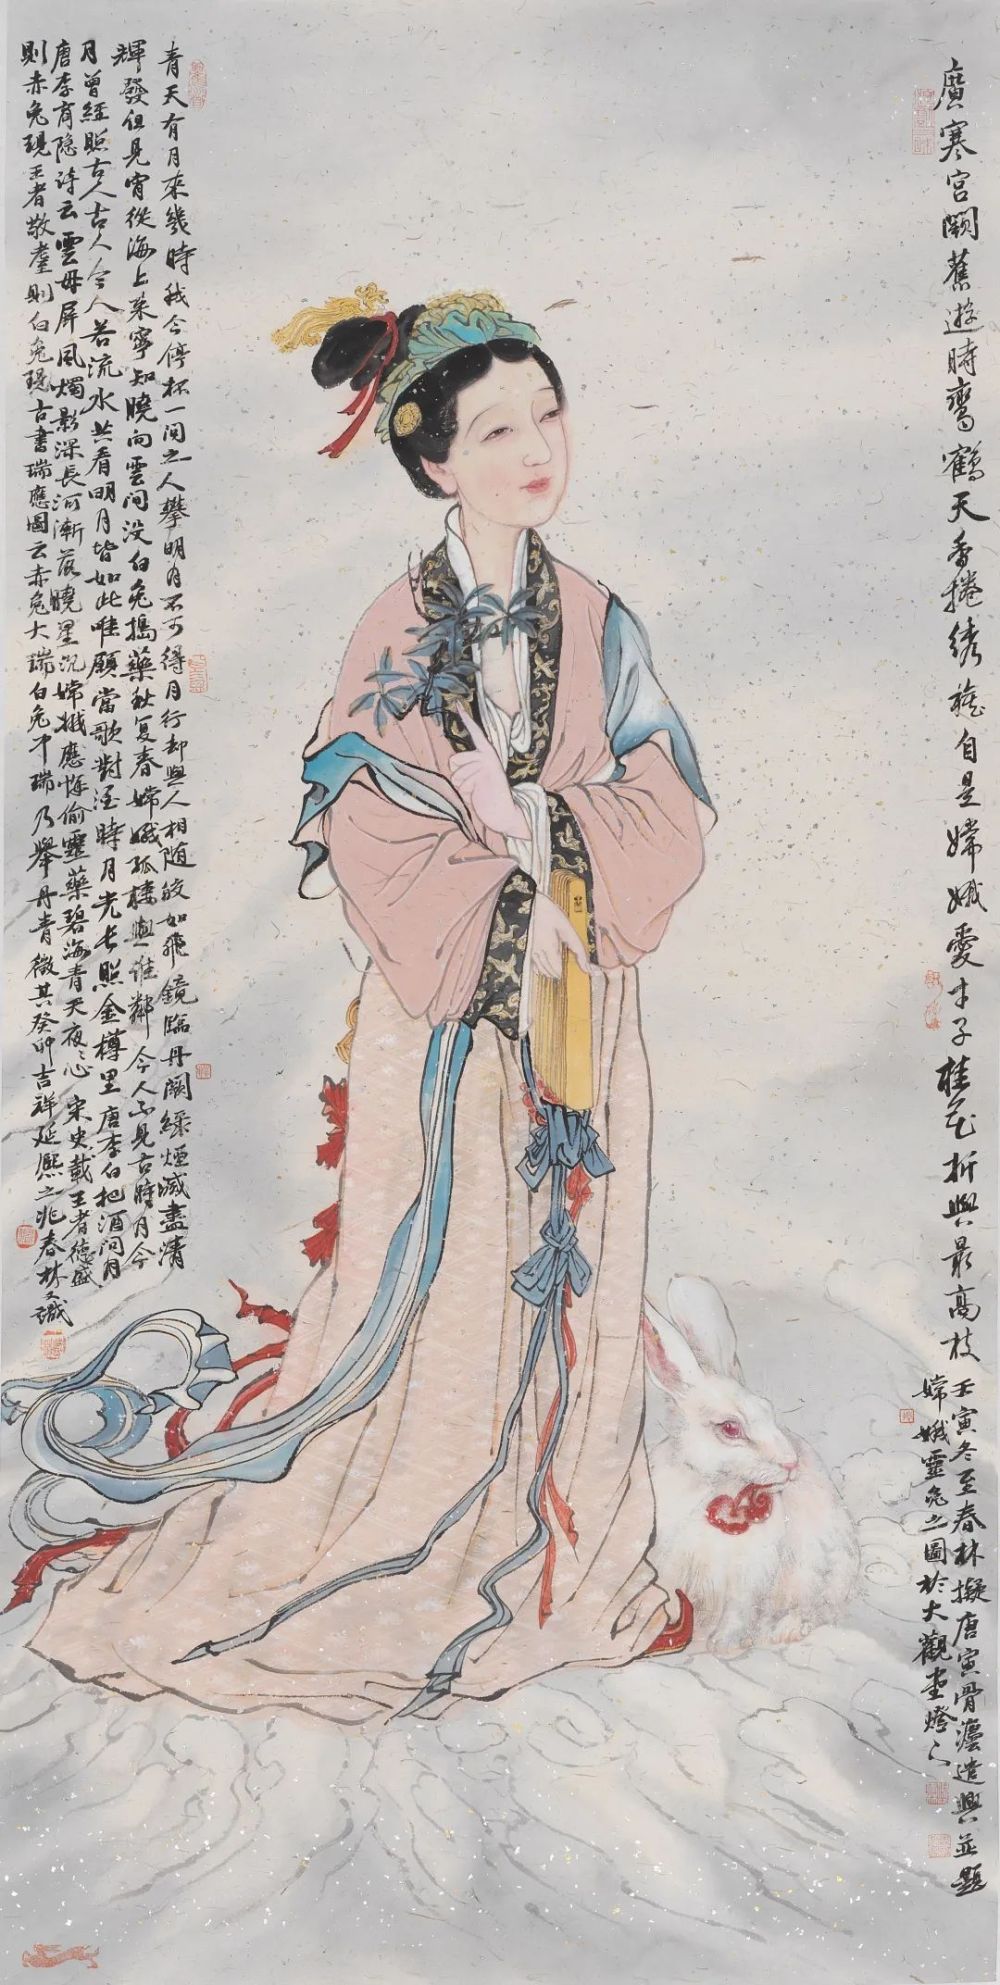 廣寒宮闕舊遊時鸞鶴天香捲綉旗自是嫦娥愛才子桂花折與最高枝
壬寅冬至春林擬唐寅骨灋遣興並題
嫦娥靈兔之圖於大觀堂燈下
青天有月來幾時我今停杯一問之人攀明月不可得月行却與人相随皎如飛鏡臨丹闕綠煙滅盡清
輝發但見宵從海上來寧知曉向雲间沒白兔搗藥秋复春嫦娥孤棲與誰鄰今人不見古時月今
月曾經照古人古人今人若流水共看明月皆如此唯願當歌對酒時月光長照金樽里唐李白把酒问月
唐李商隐诗云雲母屏風燭影深長河漸落曉星沉嫦娥應悔偷靈藥碧海青天夜夜心宋史載王者德盛
則赤兔現王者敬耋則白兔現古書瑞應圖云赤兔大瑞白兔中瑞乃舉丹青徵其癸卯吉祥延熙之兆春林又識